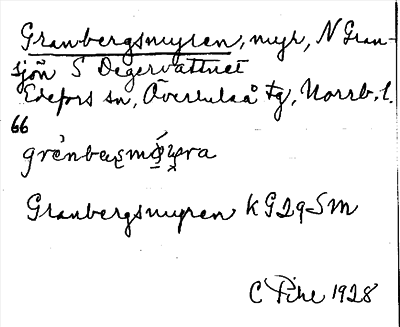 Granbergsmyren, myr, N Gran-
sjön S Degervattnet
Edefors sn, Överluleå tg, Norrb. l.
66
Granbergsmyren KG29SM
C Pihe 1928